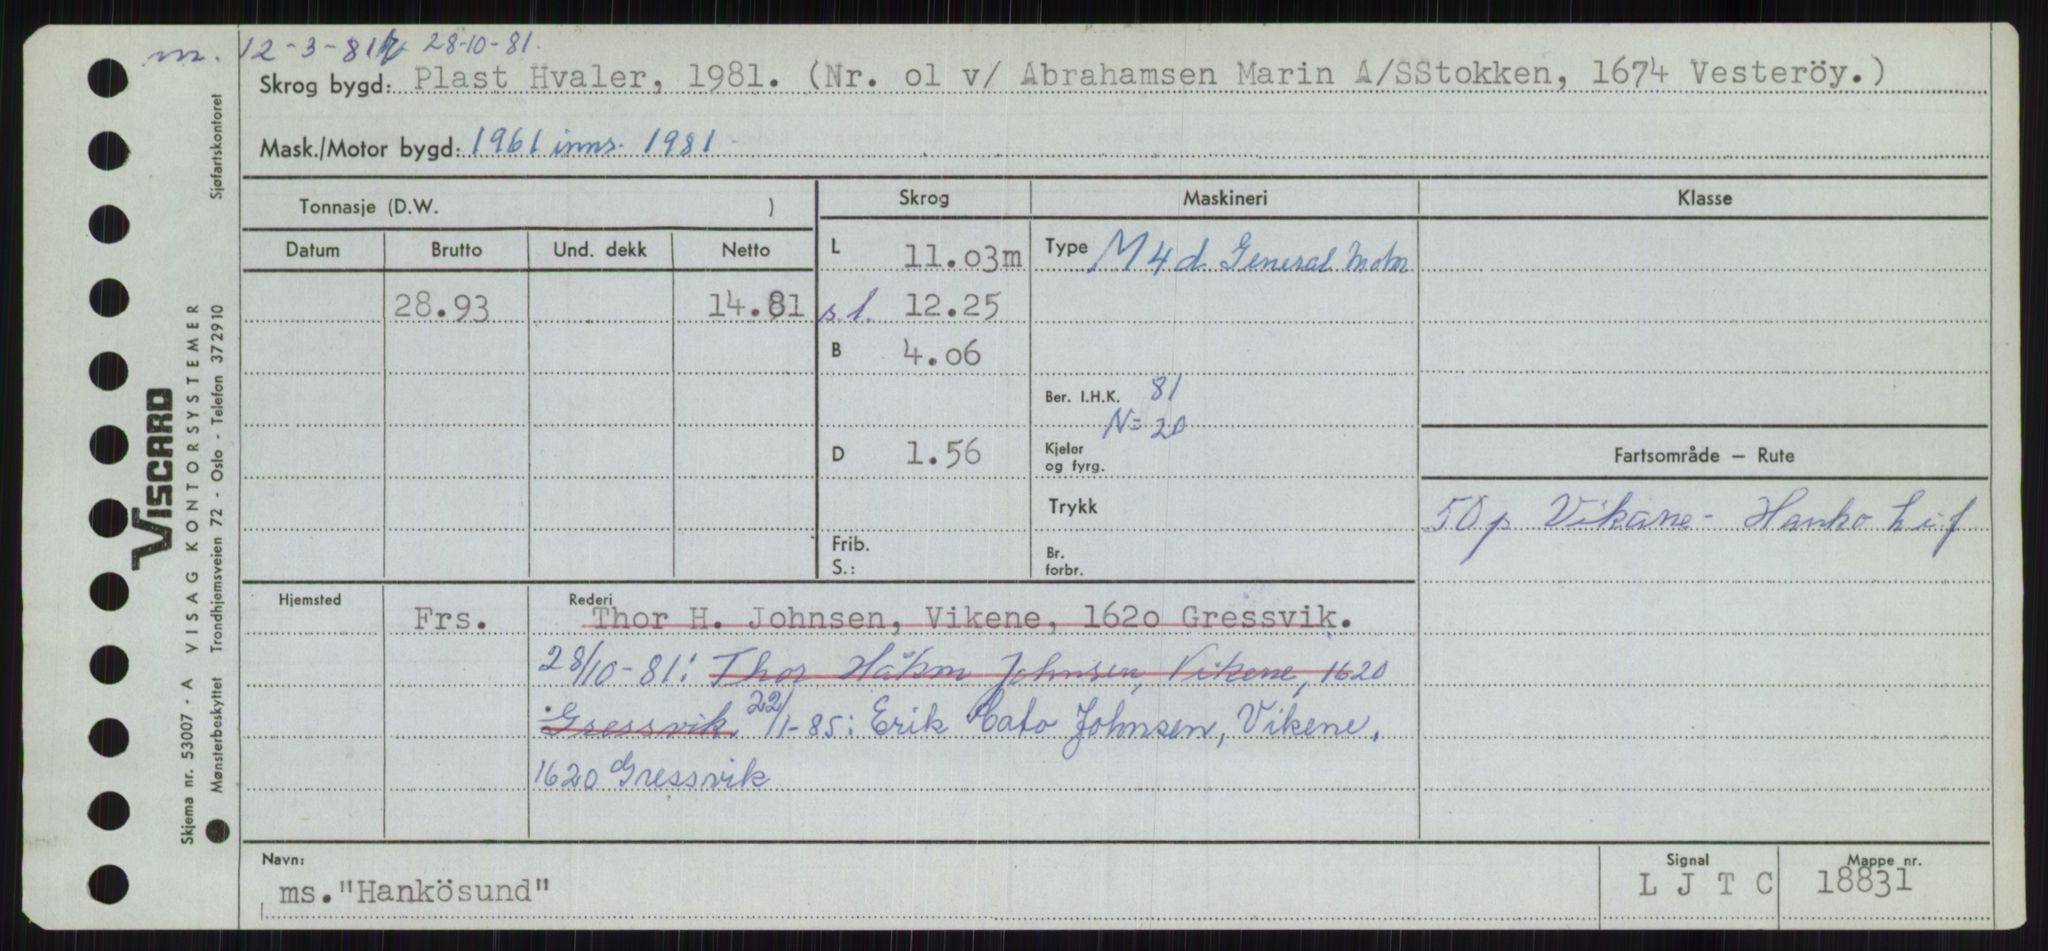 m. 12-3-81 28-10-81.
Skrog bygd: Plast Hvaler, 1981. (Nr. o1 v/ Abrahamsen Marin A/SStokken, 1674 Vesteröy.)
Mask./Motor bygd: 1961 inns. 1981
Tonnasje (D.W. )
Skrog
Maskineri
Klasse
Datum Brutto Und. dekk Netto
L 11.o3m
Type M 4 d General Motor
28.93 14.81
s.l. 12.25
B 4.o6
Ber. I.H.K. 81
N= 20
D 1.56
Kjeler
og fyrg.
Trykk
Frib.
S.:
Br.
forbr.
Fartsområde — Rute
50 p Vikane - Hanko
Hjemsted
Frs.
Rederi
Thor H. Johnsen, Vikene, 162o Gressvik.
28/10-81: Thor Håkon Johnsen, Vikene, 1620
Gressvik 22/1-85: Erik Cato Johnsen, Vikene,
1620 Gressvik
Navn:
ms."Hankösund"
Signal
L J T C
Mappe nr.
18831
VISCARD
Skjema nr. 53007 - A VISAG KONTORSYSTEMER
Mønsterbeskyttet Trondhjemsveien 72 - Oslo - Telefon 372910
Sjøfartskontoret